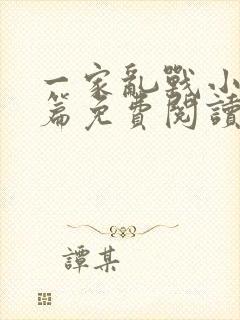 一家亂戰小
篇免費閱讀
譚某